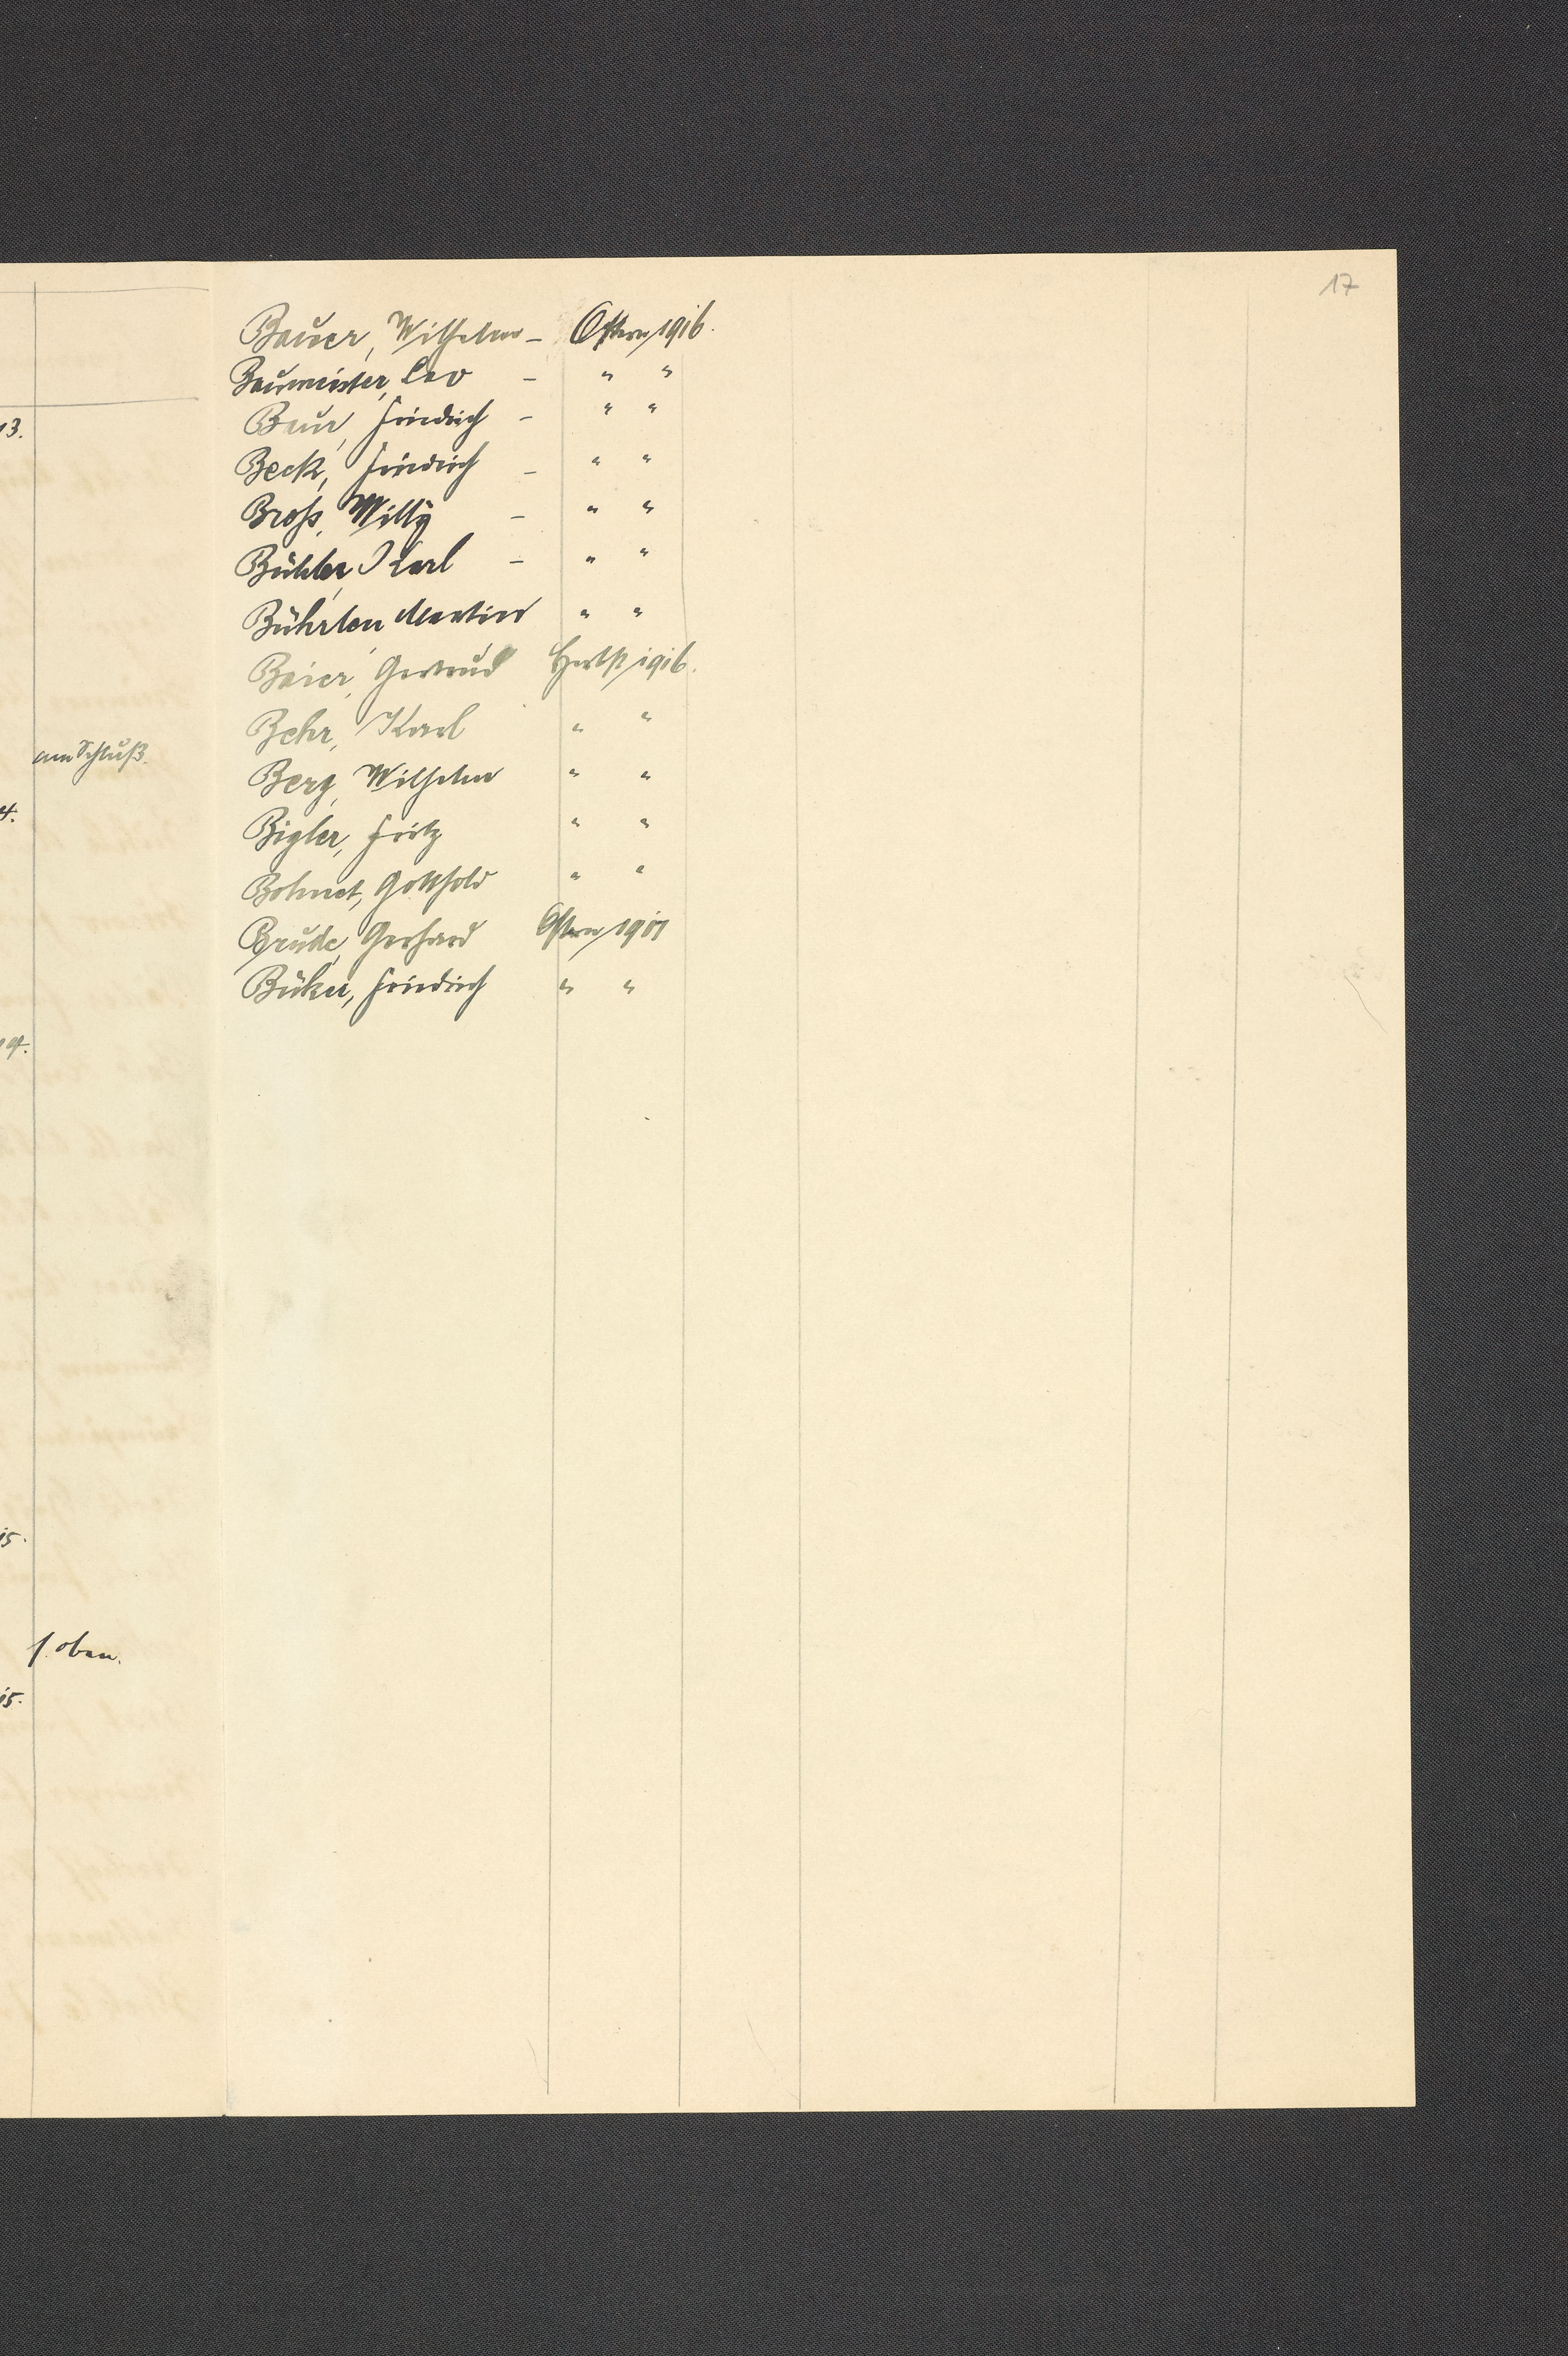 17
13.
am Schluß.
4.
14.
15.
s. oben.
15.
Bauer, Wilhelm – Ostern 1916.
Baumeister, Leo – " "
Baur, Friedrich – " "
Beck, Friedrich – " "
Broß, Willy – " "
Bühler, Karl – " "
Martin " "
Baier, Gertrud Herbst 1916.
Behr, Karl " "
Berg, Wilhelm " "
Bigler, Fritz " "
Bohnet, Gotthold " "
Brude, Gerhard Ostern 1917
Friedrich " "